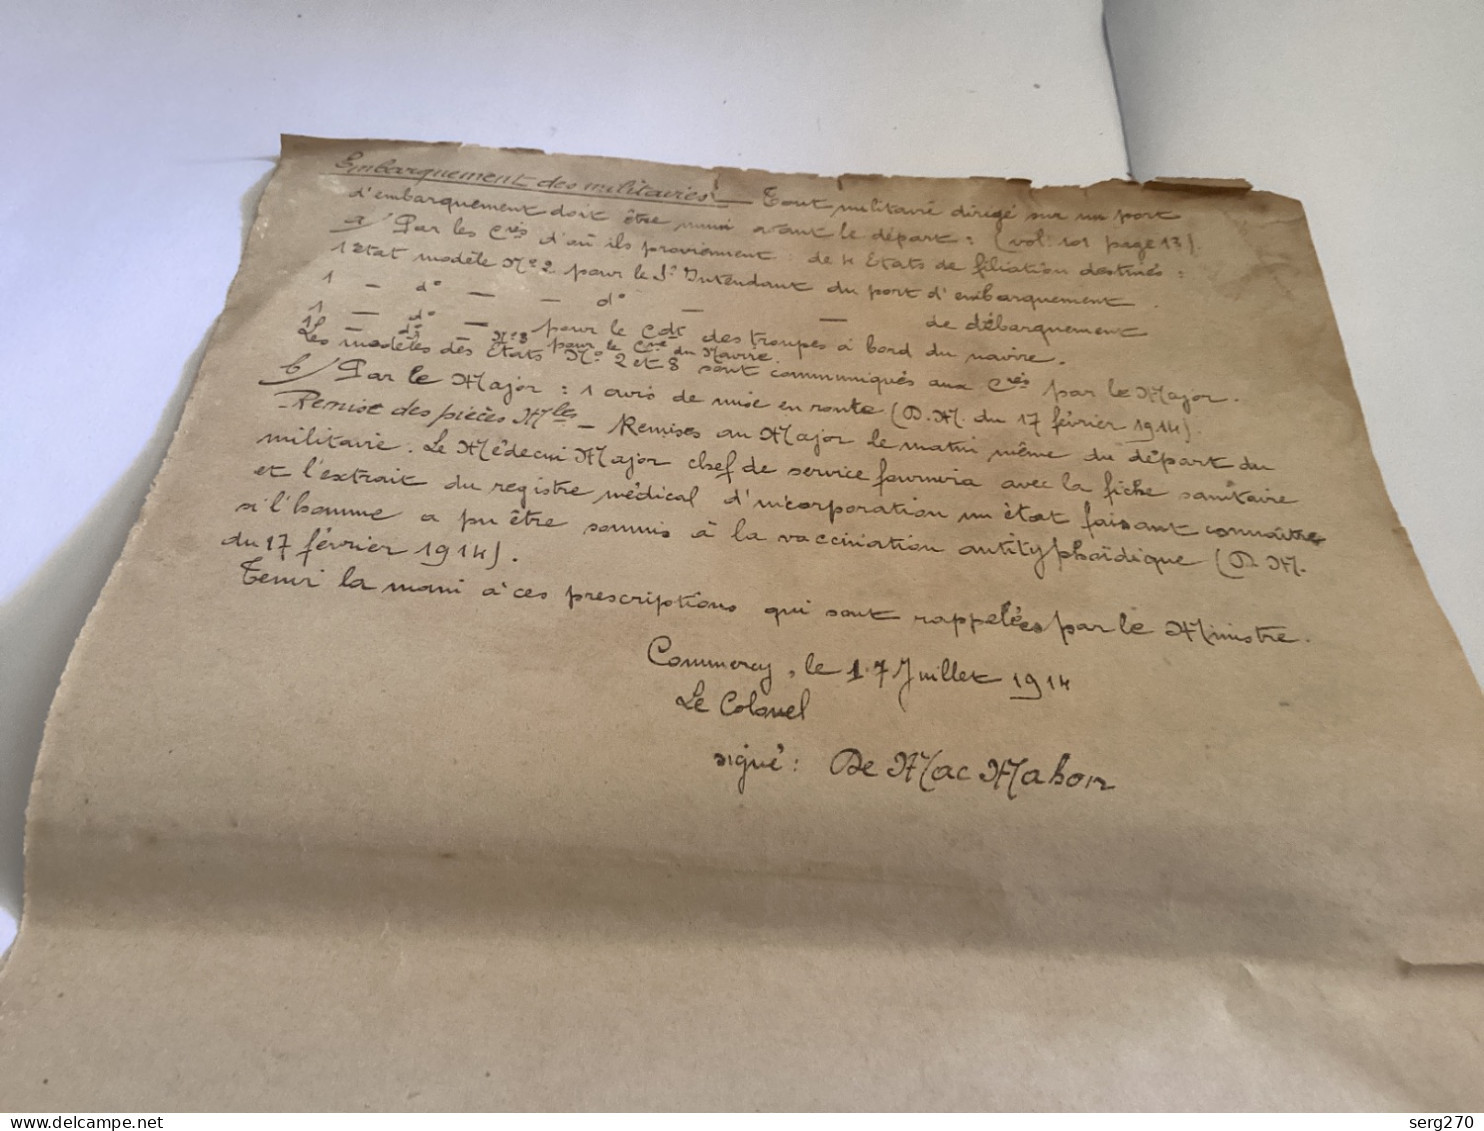 Embarquement des militaires. — Tout militaire dirigé sur un port
d'embarquement doit être muni avant le départ : (vol. 101 page 13).
a/ Par les Cies d'où ils proviennent : de 4 Etats de filiation destinés :
1 Etat modèle No 2 pour le Sr Intendant du port d'embarquement.
1 — do — — do — — de débarquement
1 — do — pour le Cdt des troupes à bord du navire.
1 — do — No 8 pour le Cre du Navire.
Les modèles des Etats No 2 et 8 sont communiqués aux Cies par le Major.
b/ Par le Major : 1 avis de mise en route (D.M. du 17 février 1914).
Remise des pièces Mles — Remises au Major le matin même du départ du
militaire. Le Médecin Major chef de service fournira avec la fiche sanitaire
et l'extrait du registre médical d'incorporation un état faisant connaître
si l'homme a pu être soumis à la vaccination antityphoïdique (D.M.
du 17 février 1914).
Tenir la main à ces prescriptions qui sont rappelées par le Ministre.
Commercy, le 17 Juillet 1914
Le Colonel
signé : De Mac Mahon
delcampe.net
serg270